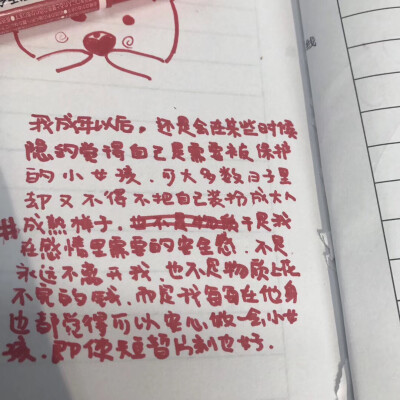 我成年以后，还是会在某些时候
隐约觉得自己是需要被保护
的小女孩，可大多数日子里
却又不得不把自己装扮成大人
成熟样子．于是我
在感情里需要的安全感．不是
永远不离开我 也不是物质上花
不完的钱．而是我每每在他身
边都觉得可以安心做一会小女
孩．即使短暂片刻也好．